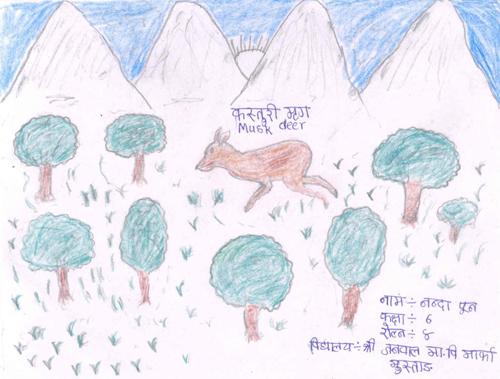 कस्तुरी मृग
Musk deer
नाम ÷ नन्दा पुन
कक्षा ÷ ६
रोल नं ÷ ४
विद्यालय ÷ श्री जनबाल मा.वि मार्फा
मुस्ताङ